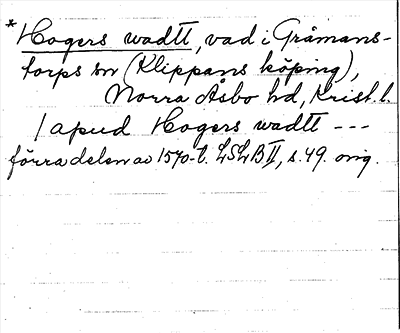 * Hogers wadtt, vad i Gråmans-
torps sn (Klippans köping),
Norra Åsbo hd, Krist. l.
/ apud Hogers wadtt ---
förra delen av 1570-t. LSLB II, s. 49. orig.